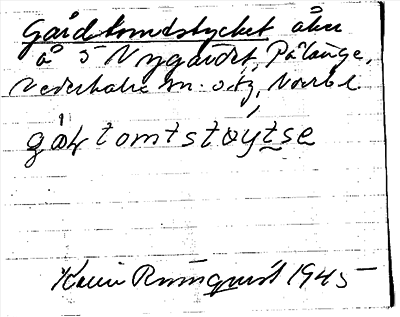 Gårdtomtstycket åker
å 5 Nygårdet, Pålänge,
Nederkalix sn. o. tg, Norrb. l.
gå̀ɽtomtstöýtse
Karin Runnquist 1945